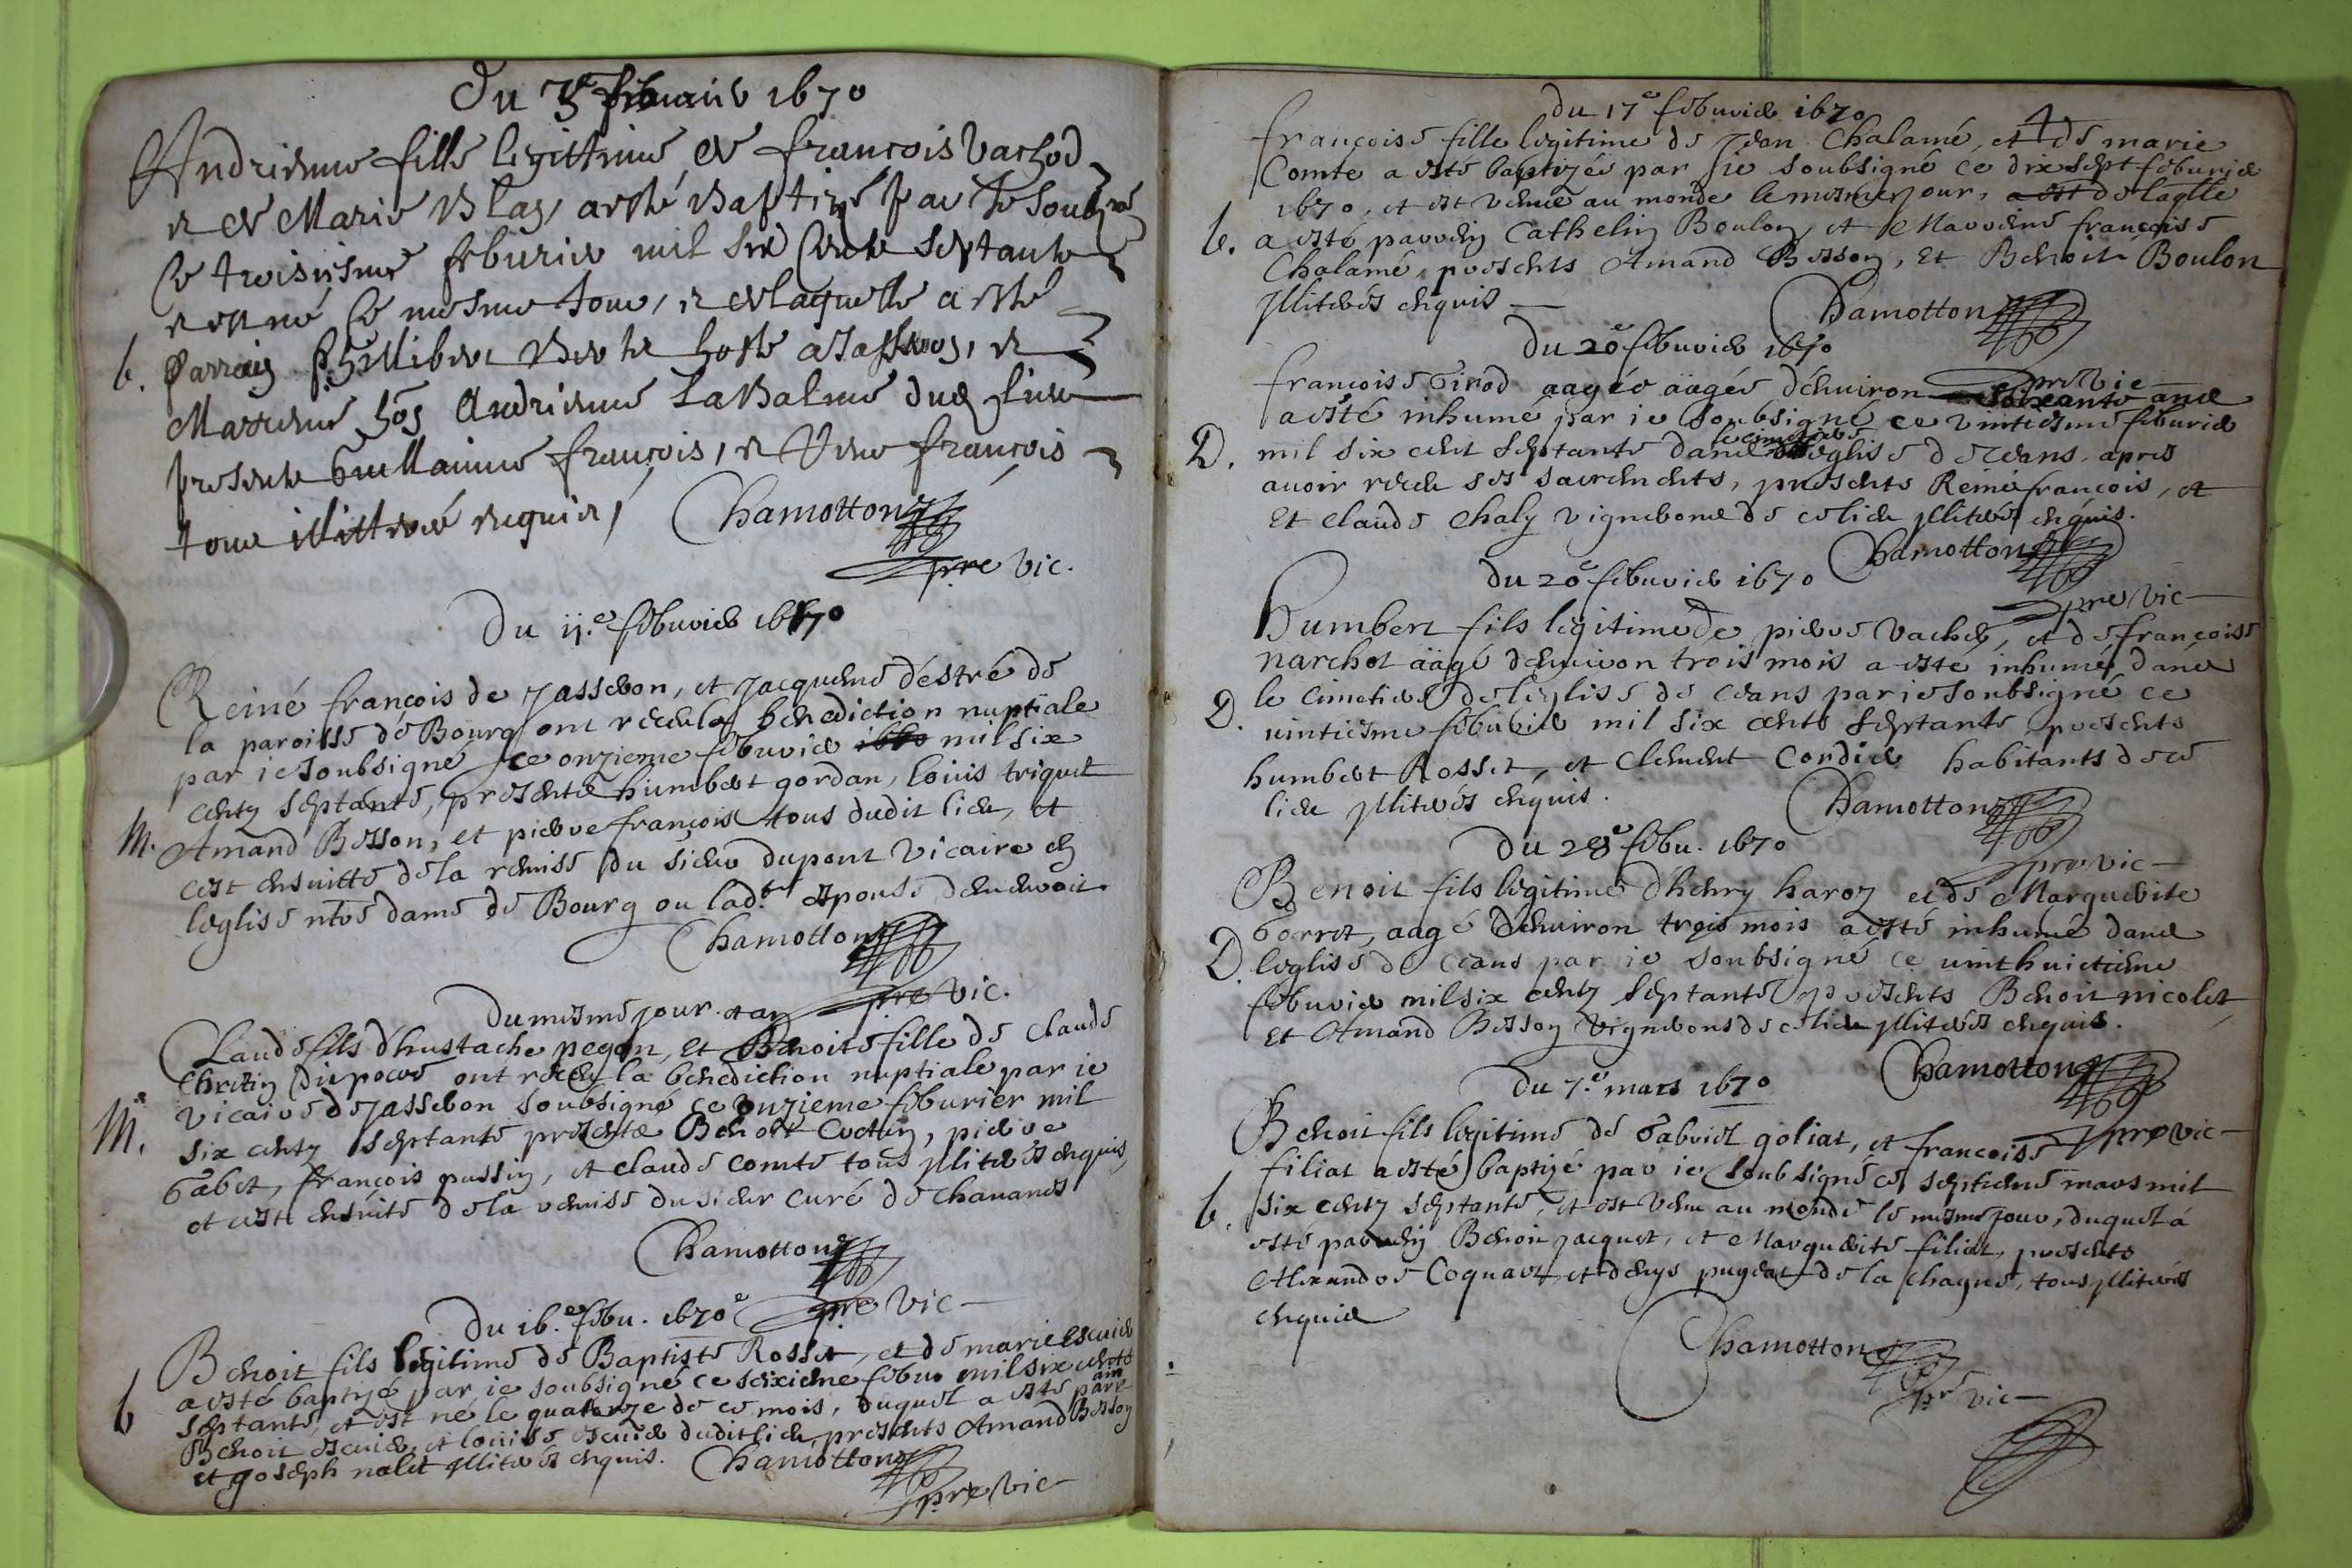 Du 3e febvrier 1670
Andrienne fille legittime de francois Vachod
et de Marie Blay, a esté Baptizé par Je Soub.né
Ce troisiesme feburier mil six Cents Septante
et est né Ce mesme Jour, et de laquelle a esté
b. Parrain Philliber hoste a Jasseron, et
Marreine hon Andrienne La Balme dud lieu
presents Guillaume françois, et françois
tous illitteré enquis,
Chamotton
pre vic.
Du 11.e febuvier 1670
Reiné françois de Jasseron, et Jacquene déstré de
la paroisse de Bourg ont receu la benediction nuptiale
par ie soubsigné ce onzieme febuvier 1660 mil six
centz septante, presents humbert gordan, louis triquet
M. Amand Besson, et pierre francois tous dudit lieu, et
cest ensuitte de la remise du sieur dupont Vicaire en
leglise ntre dame de Bourg ou lad.te espouse demeuroit
Chamotton
pre vic.
Du mesme jour et an
Claude fils dhustache pegon, et Benoite fille de Claude
Chretin ont receu la benediction nuptiale par ie
vicaire de Jasseron soubsigné ce onzieme feburier mil
M. six centz septante presents Benoit Cochin, pierre
Gabet, françois pussin, et claude comte tous illiterés enquis,
et cest ensuite de la remise du sieur curé de chavanes
Chamotton
pre vic
Du 16.e febu. 1670
Benoit fils legitime de Baptiste Rosset, et de marie Escuier
b a esté baptizé par ie soubsigné ce seixieme febu. mil six cents
septante, et est né le quatorze de ce mois, duquel a esté parain
Benoit escuier, et louise escuier dudit lieu, presents Amand Besson
et Joseph nalet illiterés enquis. Chamotton
pre vic
4
du 17e febuvier 1670
françoise fille legitime de Jean Chalamé, et de marie
Comte a esté baptizée par Jie soubsigné ce dix sept feburier
1670, et est venue au monde le mesme jour, a est de laqlle
b. a esté parrein Cathelin Boulon, et Marrene françoise
Chalamé, presents Amand Besson, Et Benoit Boulon
illiterés enquis
Chamotton
pre vic
Du 20e febuvier 1670
francoise Girod aagée aagée d'environ soixante ans
a esté inhumé par ie soubsigné ce vintiesme feburier
D. mil six cent septante dans le cimetiere leglise de ceans apres
avoir receu ses sacrements, presents Reiné françois, et
Et claude Chaly vignerons de ce lieu illiterés enquis.
Chamotton
pre vic
du 20e febuvier 1670
Humbert fils legitime de pierre Vacher, et de francoise
narchot aagé denviron trois mois a esté inhumé dans
D. le cimetiere de leglise de ceans par ie soubsigné ce
vintiesme febuvier mil six cents septante presents
humbert Rosset, et Clement Cordier habitants de ce
lieu illiterés enquis.
Chamotton
pre vic
Du 28e febu. 1670
Benoit fils legitime d'henry haroz et de Marguerite
Gorret, aagé denviron trois mois a esté inhumé dans
D. leglise de ceans par ie soubsigné ce vinthuictieme
febuvier mil six centz septante presents Benoit nicolet
Et Amand Besson vignerons de ce lieu illiterés enquis.
Chamotton
pre vic
Du 7.e mars 1670
Benoit fils legitime de Gabriel goliat, et francoise
filiat a esté baptizé par ie soubsigné ce septieme mars mil
b. six centz septante, et est venu au monde le mesme jour, duquel a
esté parrein Benoit Jacquet, et Marguerite filiat, presents
Alexandre Coquart, et denys pugeat de la chagne, tous illiterés
enquis
Chamotton
pre vic